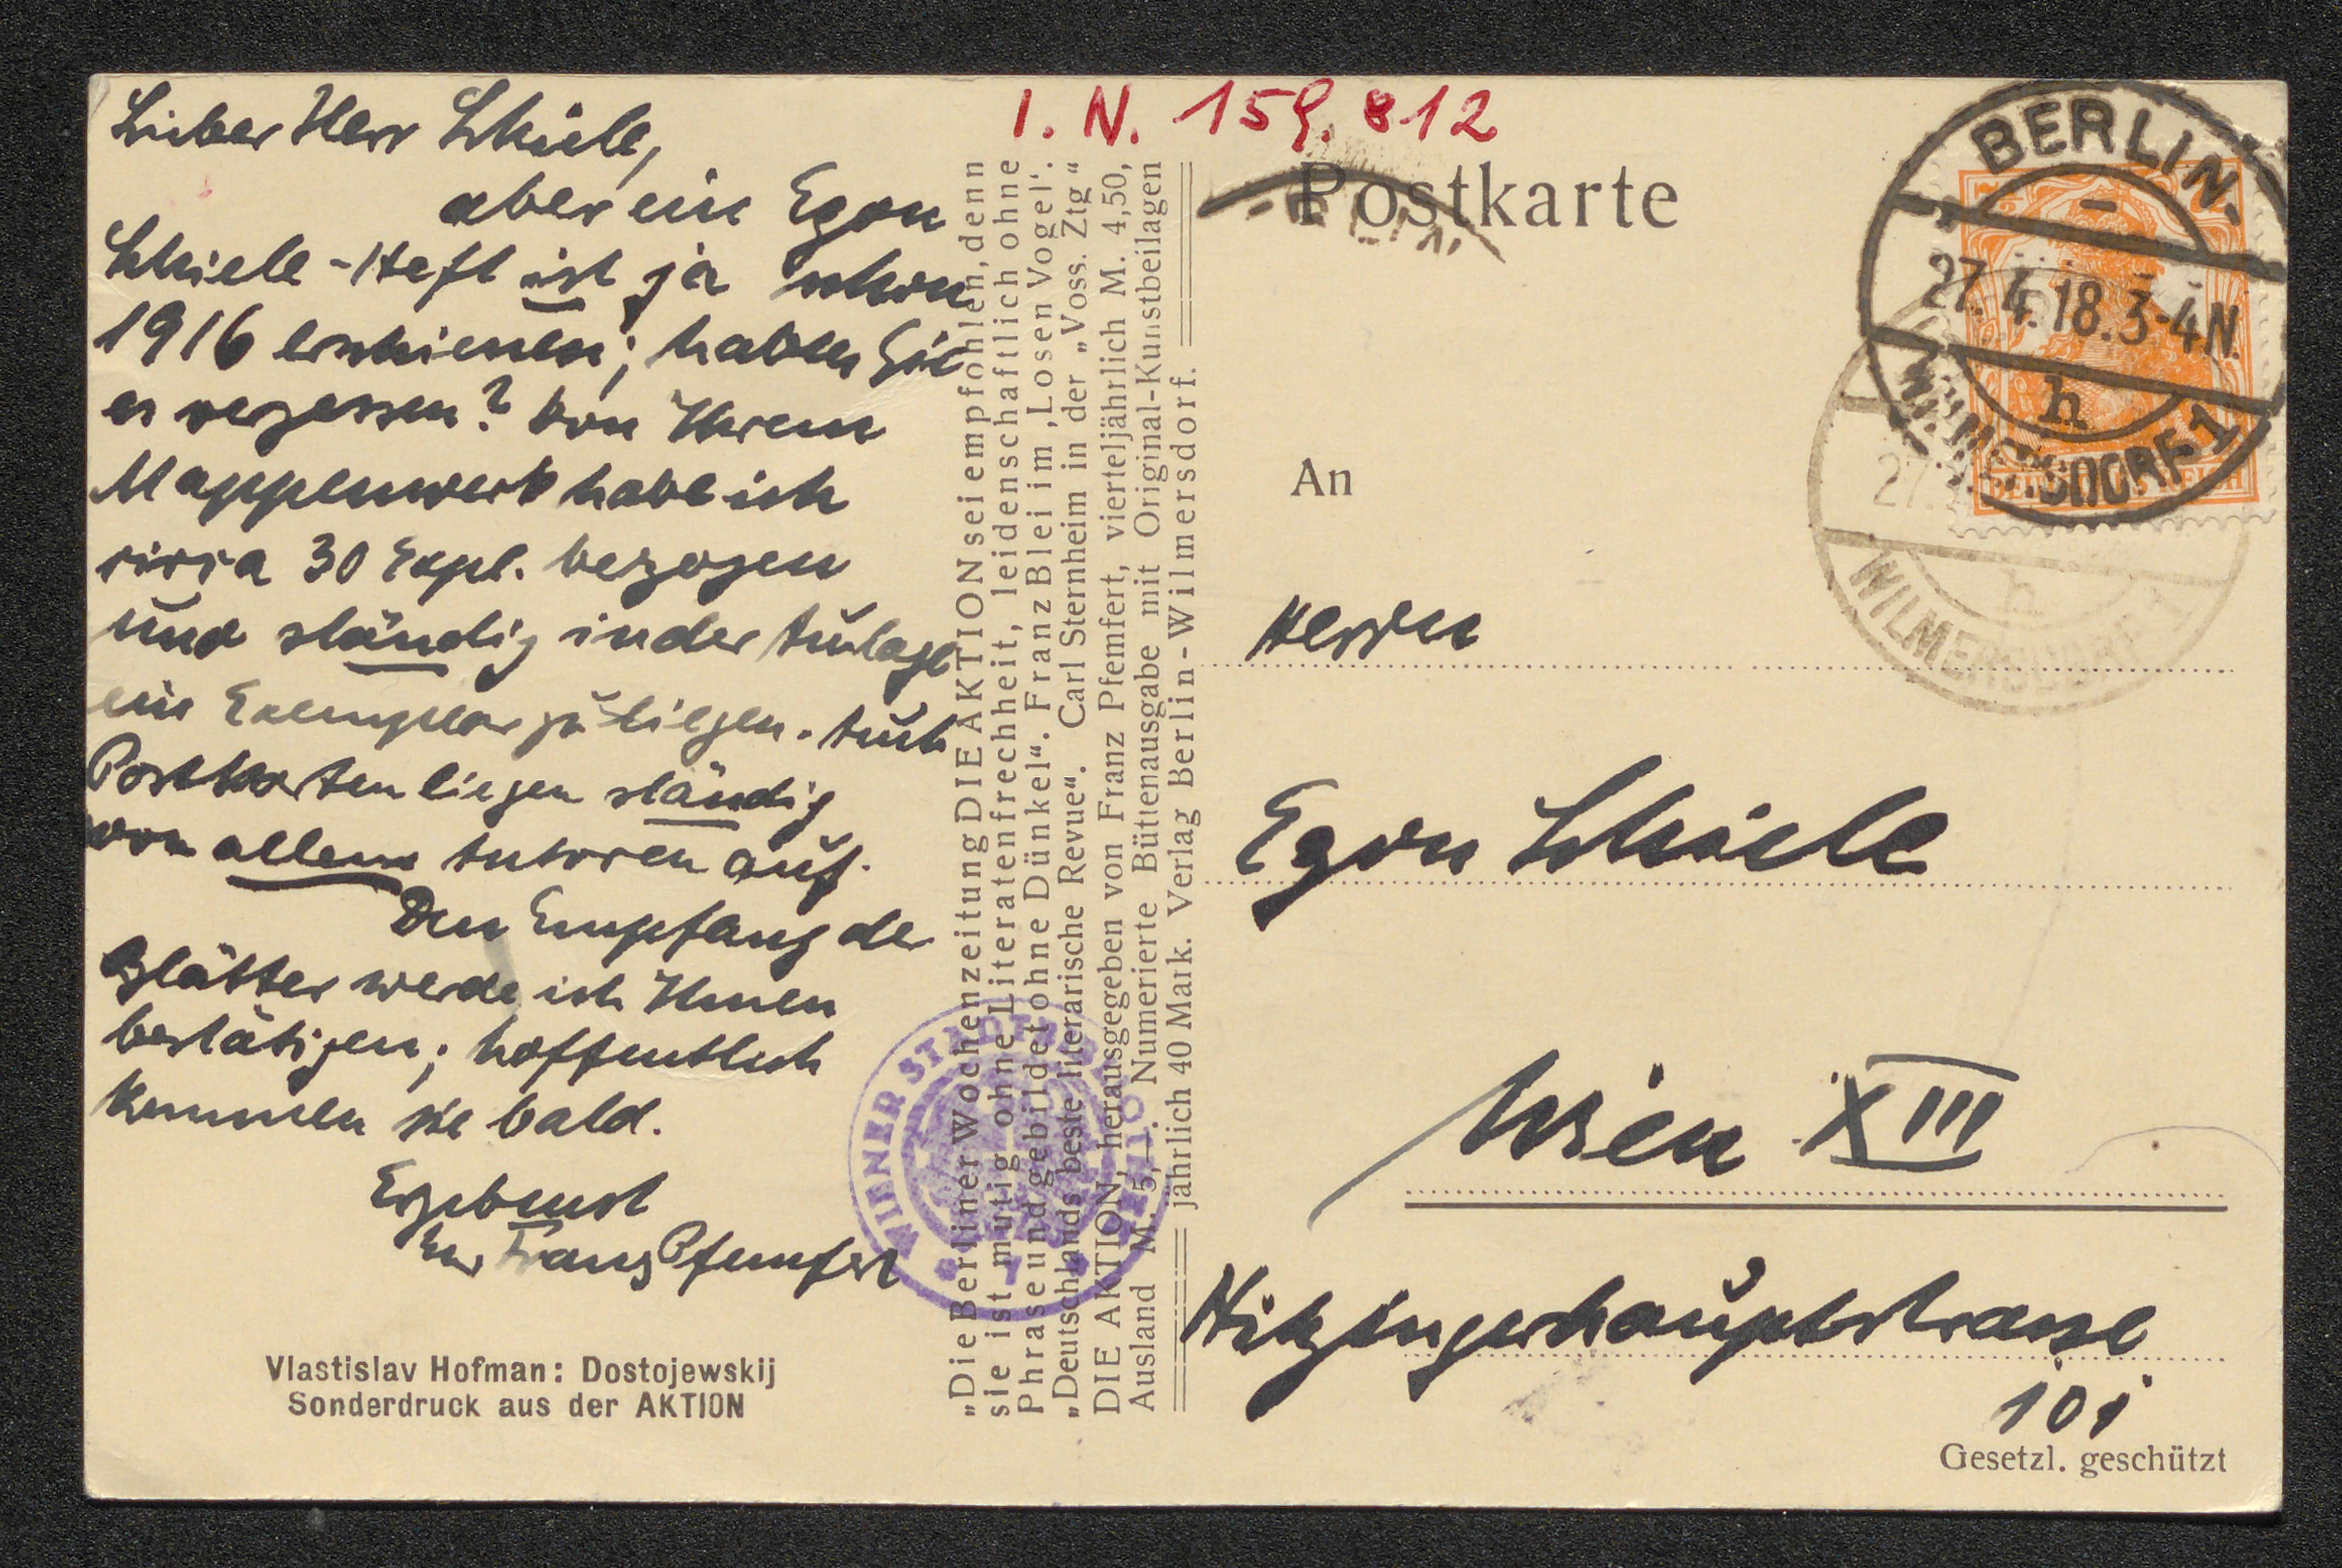 I. N. 159.812
Lieber Herr Schiele,
aber ein Egon
Schiele-Heft ist ja schon
1916 erschienen; haben Sie
es vergessen? Von Ihrem
Mappenwerk habe ich
circa 30 Expl. bezogen
und ständig in der Auslage
ein Exemplar zu liegen. Auch
Postkarten liegen ständig
von allen Autoren auf.
Den Empfang der
Blätter werde ich Ihnen
bestätigen; hoffentlich
kommen sie bald.
Ergebenst
Ihr Franz Pfemfert
Vlastislav Hofman: Dostojewskij
Sonderdruck aus der AKTION
„Die Berliner Wochenzeitung DIE AKTION sei empfohlen, denn
sie ist mutig ohne Literatenfrechheit, leidenschaftlich ohne
Phrase und gebildet ohne Dünkel“. Franz Blei im ‚Losen Vogel‘.
„Deutschlands beste literarische Revue“. Carl Sternheim in der „Voss. Ztg“
DIE AKTION, herausgegeben von Franz Pfemfert, vierteljährlich M. 4,50,
Ausland M. 5,—. Numerierte Büttenausgabe mit Original-Kunstbeilagen
jährlich 40 Mark. Verlag Berlin-Wilmersdorf.
WIENER STADT
Postkarte
BERLIN.
27.4.18.3-4N.
h
WILMERSDORF 1
27.
h
WILMERSDORF 1
An
Herrn
Egon Schiele
Wien XIII
Hitzingerhauptstrasse
101
Gesetzl. geschützt